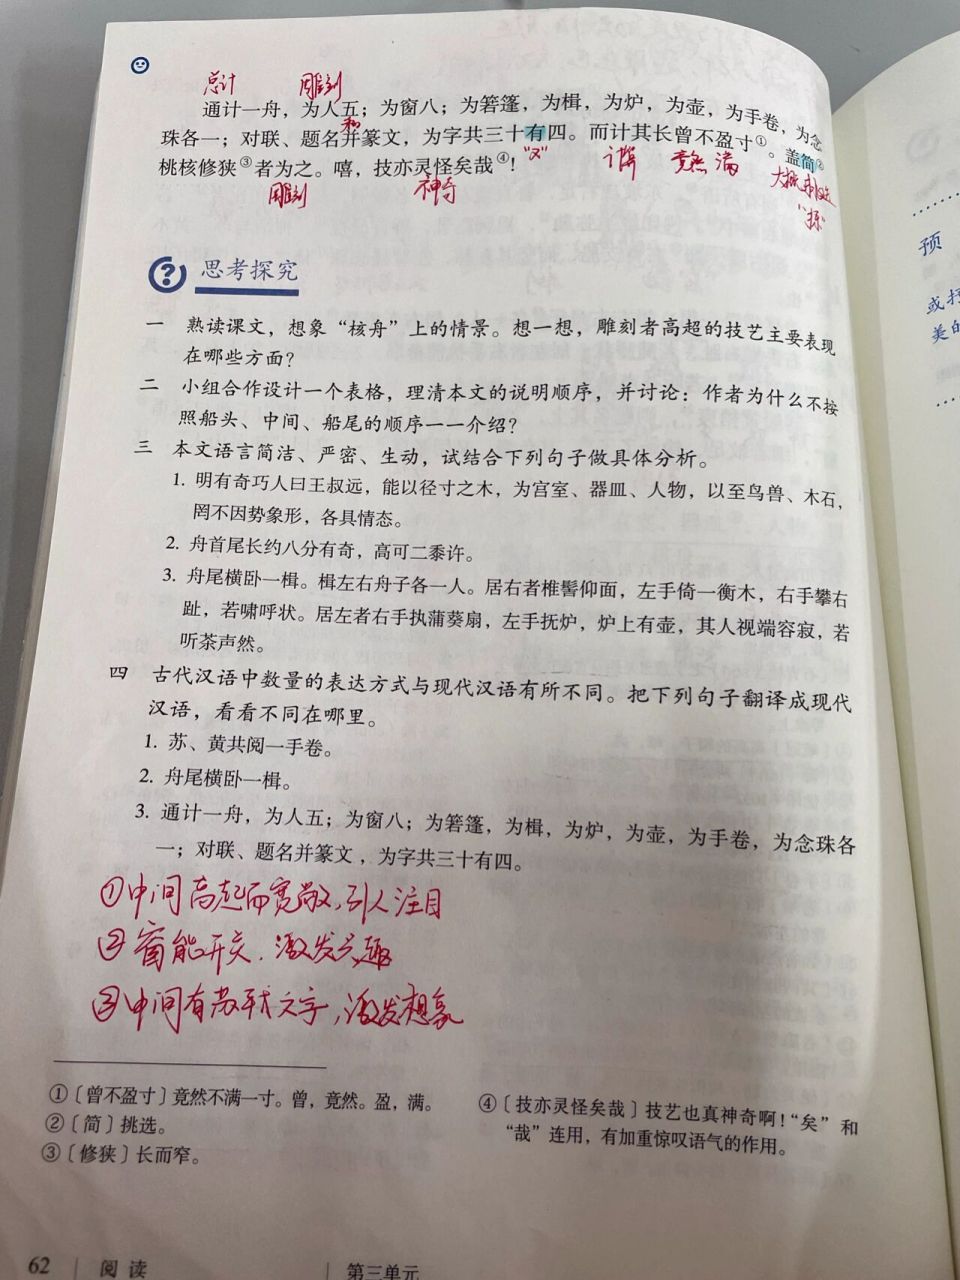 总计 雕刻
通计一舟，为人五；为窗八；为箬篷，为楫，为炉，为壶，为手卷，为念
和
珠各一；对联、题名并篆文，为字共三十有四。而计其长曾不盈寸①。盖简②
"又" 计算 竟然 满 大概
桃核修狭③者为之。嘻，技亦灵怪矣哉④！
雕刻 神奇
"拣"
思考探究
一 熟读课文，想象“核舟”上的情景。想一想，雕刻者高超的技艺主要表现
在哪些方面？
二 小组合作设计一个表格，理清本文的说明顺序，并讨论：作者为什么不按
照船头、中间、船尾的顺序一一介绍？
三 本文语言简洁、严密、生动，试结合下列句子做具体分析。
1. 明有奇巧人曰王叔远，能以径寸之木，为宫室、器皿、人物，以至鸟兽、木石，
罔不因势象形，各具情态。
2. 舟首尾长约八分有奇，高可二黍许。
3. 舟尾横卧一楫。楫左右舟子各一人。居右者椎髻仰面，左手倚一衡木，右手攀右
趾，若啸呼状。居左者右手执蒲葵扇，左手抚炉，炉上有壶，其人视端容寂，若
听茶声然。
四 古代汉语中数量的表达方式与现代汉语有所不同。把下列句子翻译成现代
汉语，看看不同在哪里。
1. 苏、黄共阅一手卷。
2. 舟尾横卧一楫。
3. 通计一舟，为人五；为窗八；为箬篷，为楫，为炉，为壶，为手卷，为念珠各
一；对联、题名并篆文，为字共三十有四。
①中间高起而宽敞，引人注目
②窗能开关．激发兴趣
③中间有苏轼文字，激发想象
①〔曾不盈寸〕竟然不满一寸。曾，竟然。盈，满。
②〔简〕挑选。
③〔修狭〕长而窄。
④〔技亦灵怪矣哉〕技艺也真神奇啊！“矣”和
“哉”连用，有加重惊叹语气的作用。
62 阅读 第三单元
预
或抒
美的